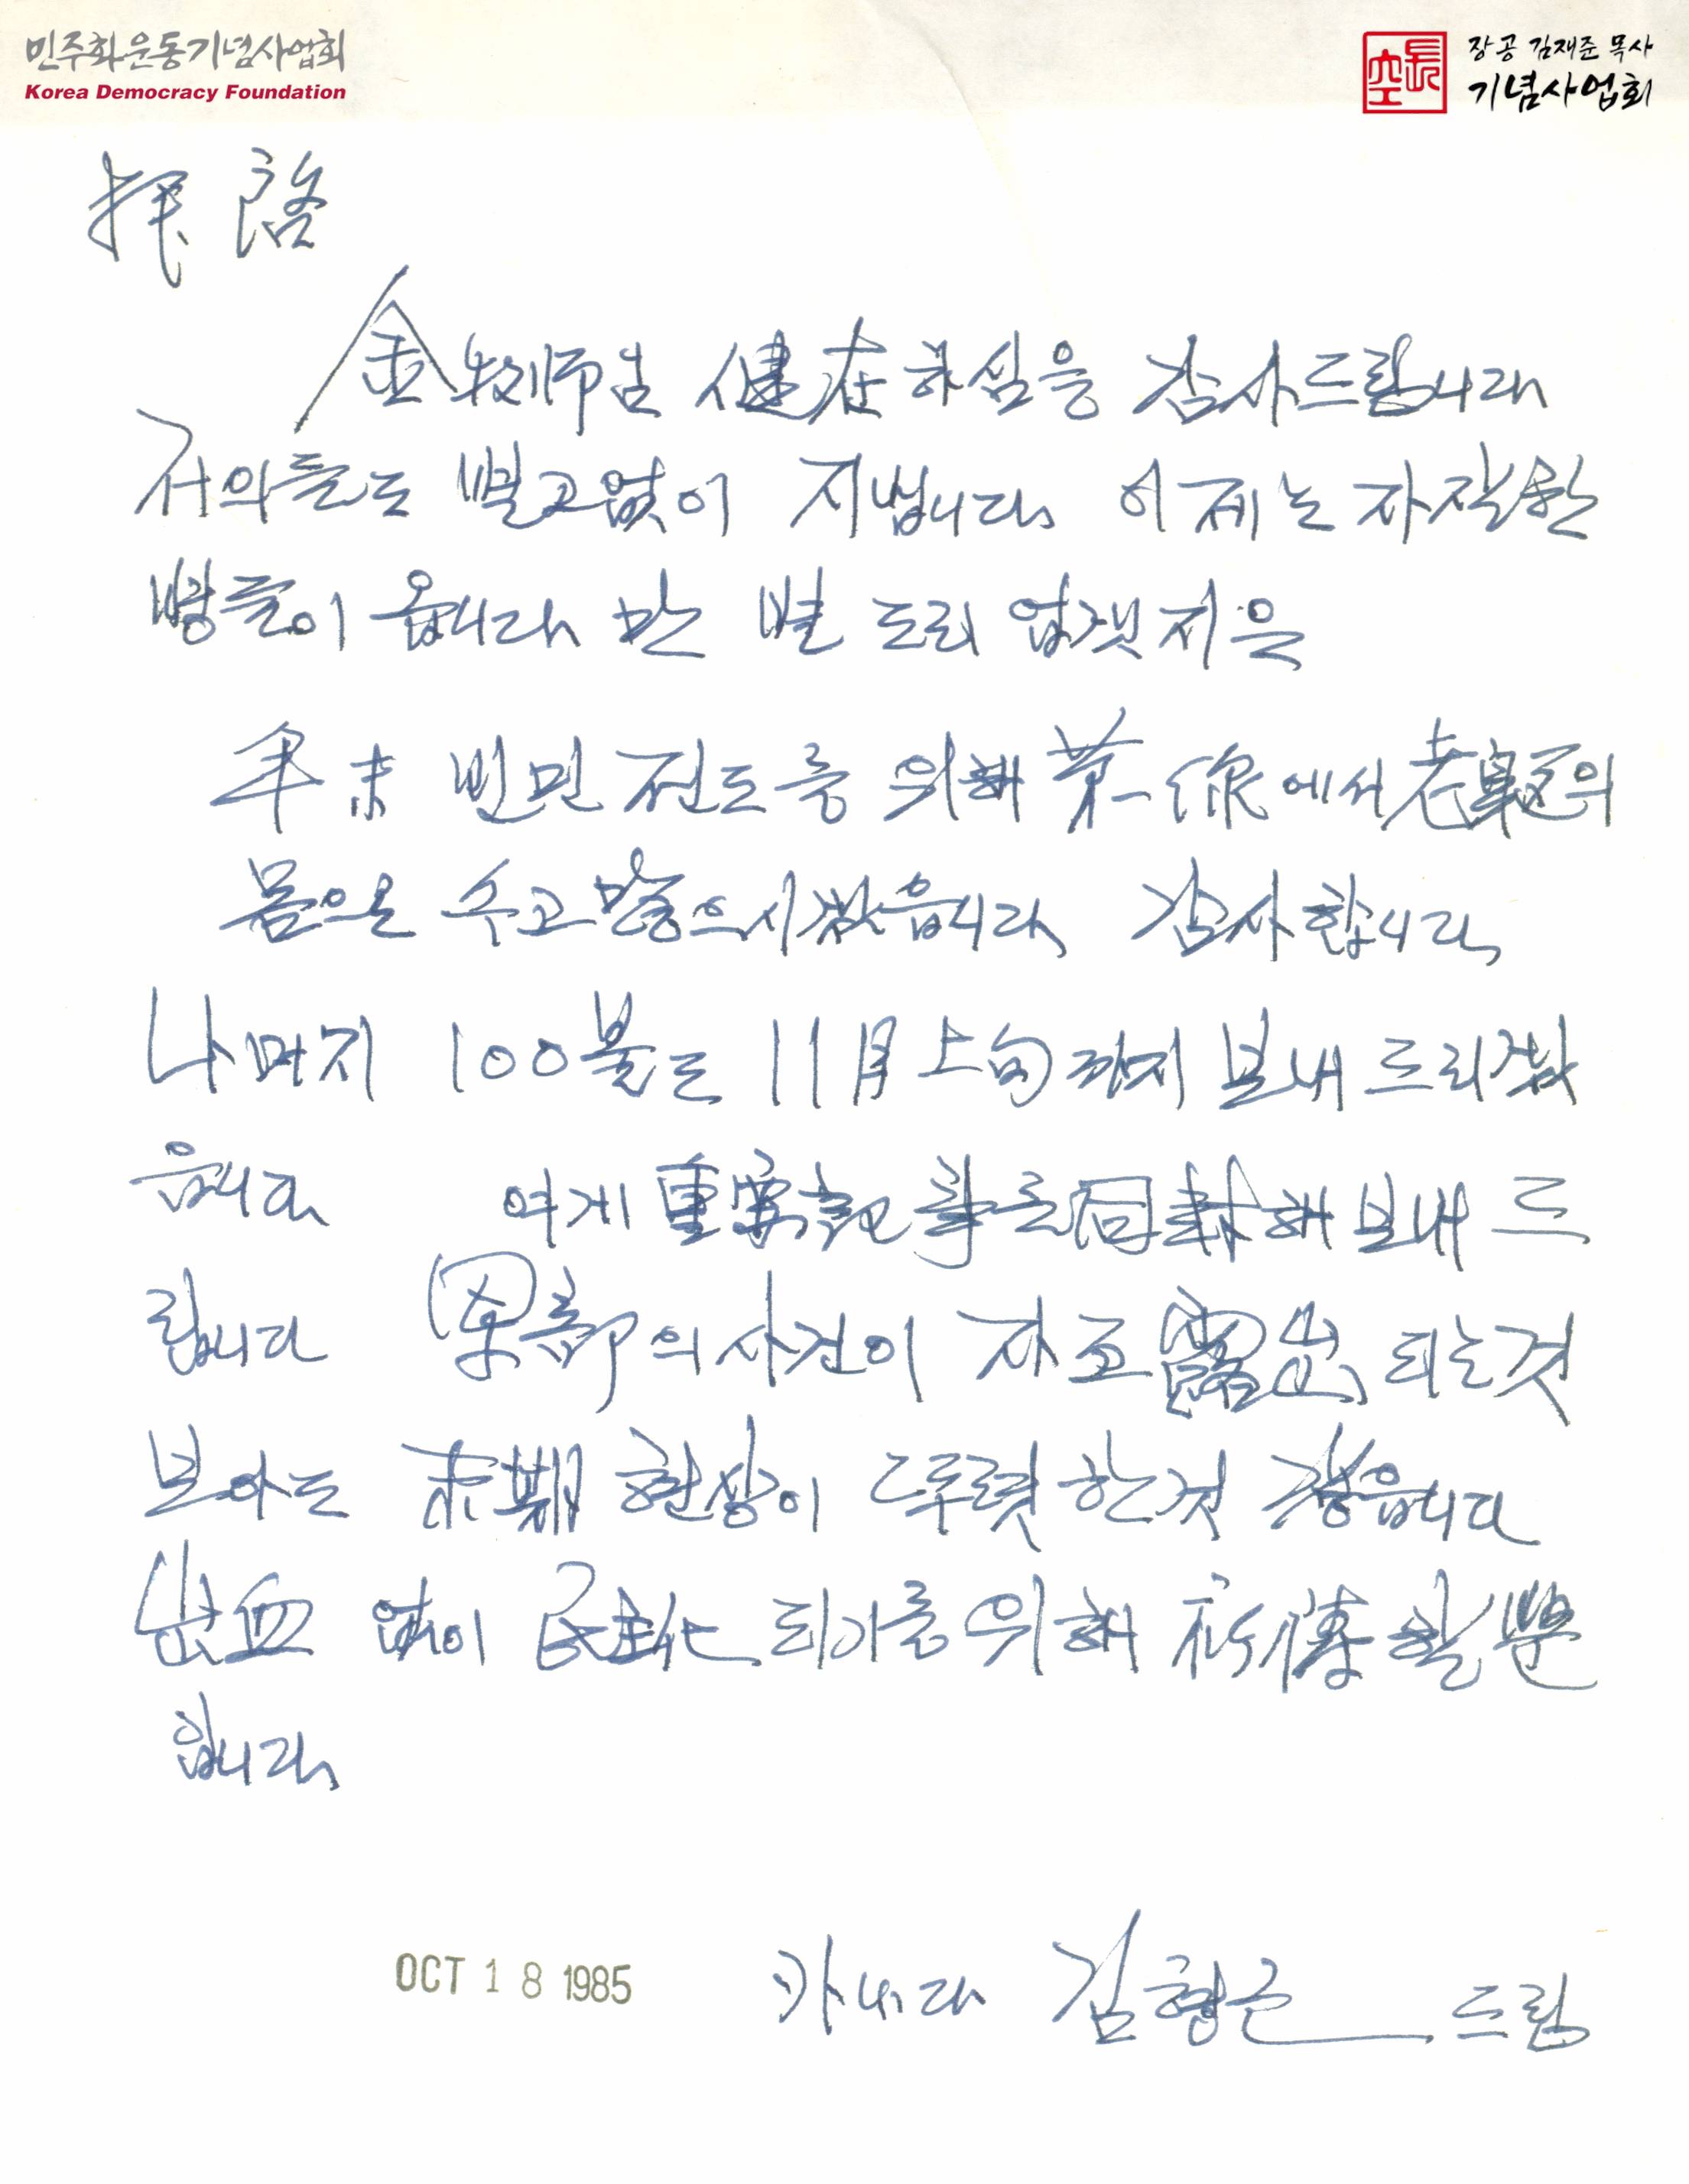 민주화운동기념사업회
Korea Democracy Foundation
장공 김재준 목사
기념사업회
拜啓
金牧师님 健在하심을 감사드립니다
저의들도 별고없이 지냅니다 이제는 자잘한
병들이 옵니다만 별 도리 없겟지은
年末 빈민 전도를 위해 第一線에서 老軀의
몸으로 수고 많으시겠읍니다 감사합니다
나머지 100불은 11月 上旬까지 보내 드리겠
읍니다 여게 重要記事을 同封해 보내 드
립니다 軍部의 사건이 자조 露出 되는것
보아도 末期 현상이 뚜렷 한것 같읍니다
出血 없이 民主化 되기를 위해 祈禱할뿐
입니다
OCT 18 1985
카나다 김형근 드림